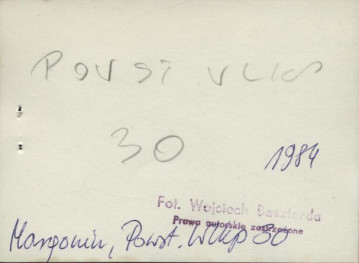 POVST VLKP
30
1984
Fot. Wojciech Beszterda
Prawa autorskie zastrzeżone
Margonin, Powst. Wlkp 30